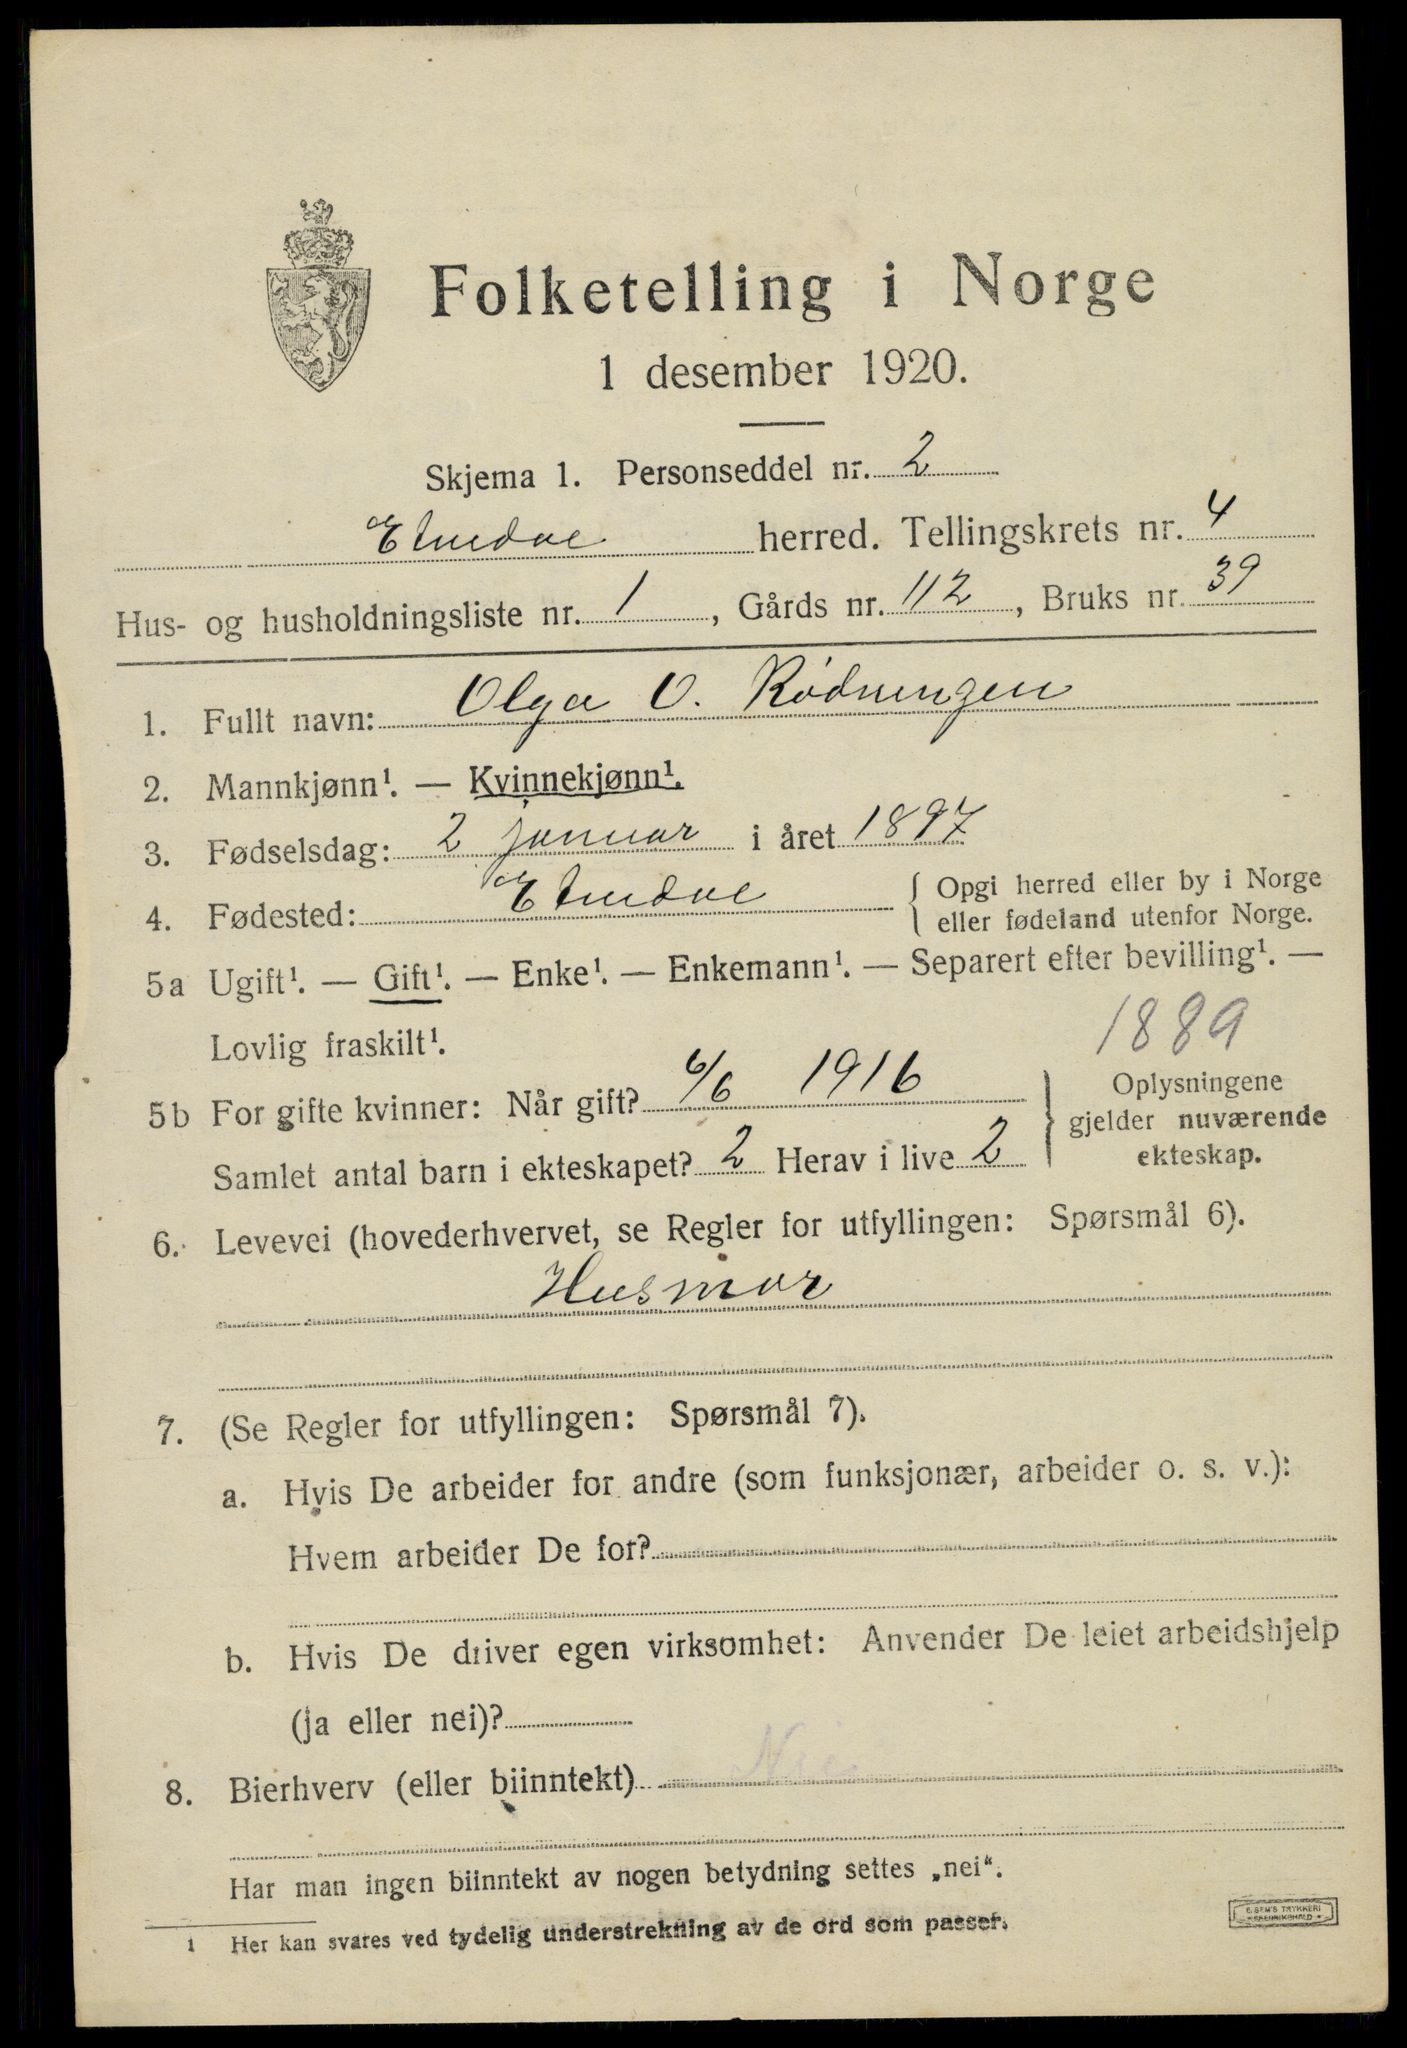 Folketelling i Norge
1 desember 1920.
Skjema 1. Personseddel nr. 2
Etnedal herred. Tellingskrets nr. 4
Hus- og husholdningsliste nr. 1, Gårds nr. 112, Bruks nr. 39
1. Fullt navn: Olga O. Rødningen
2. Mannkjønn¹. — Kvinnekjønn¹.
3. Fødselsdag: 2 januar i året 1897
4. Fødested: Etnedal { Opgi herred eller by i Norge
eller fødeland utenfor Norge.
5a Ugift¹. — Gift¹. — Enke¹. — Enkemann¹. — Separert efter bevilling¹. —
Lovlig fraskilt¹.
1889
5b For gifte kvinner: Når gift? 6/6 1916
Samlet antal barn i ekteskapet? 2 Herav i live 2
} Oplysningene
gjelder nuværende
ekteskap.
6. Levevei (hovederhvervet, se Regler for utfyllingen: Spørsmål 6).
Husmor
7. (Se Regler for utfyllingen: Spørsmål 7).
a. Hvis De arbeider for andre (som funksjonær, arbeider o. s. v.):
Hvem arbeider De for?
b. Hvis De driver egen virksomhet: Anvender De leiet arbeidshjelp
(ja eller nei)?
8. Bierhverv (eller biinntekt) Nei
Har man ingen biinntekt av nogen betydning settes „nei“.
1 Her kan svares ved tydelig understrekning av de ord som passer.
E. SEM'S TRYKKERI
FREDRIKSHALD